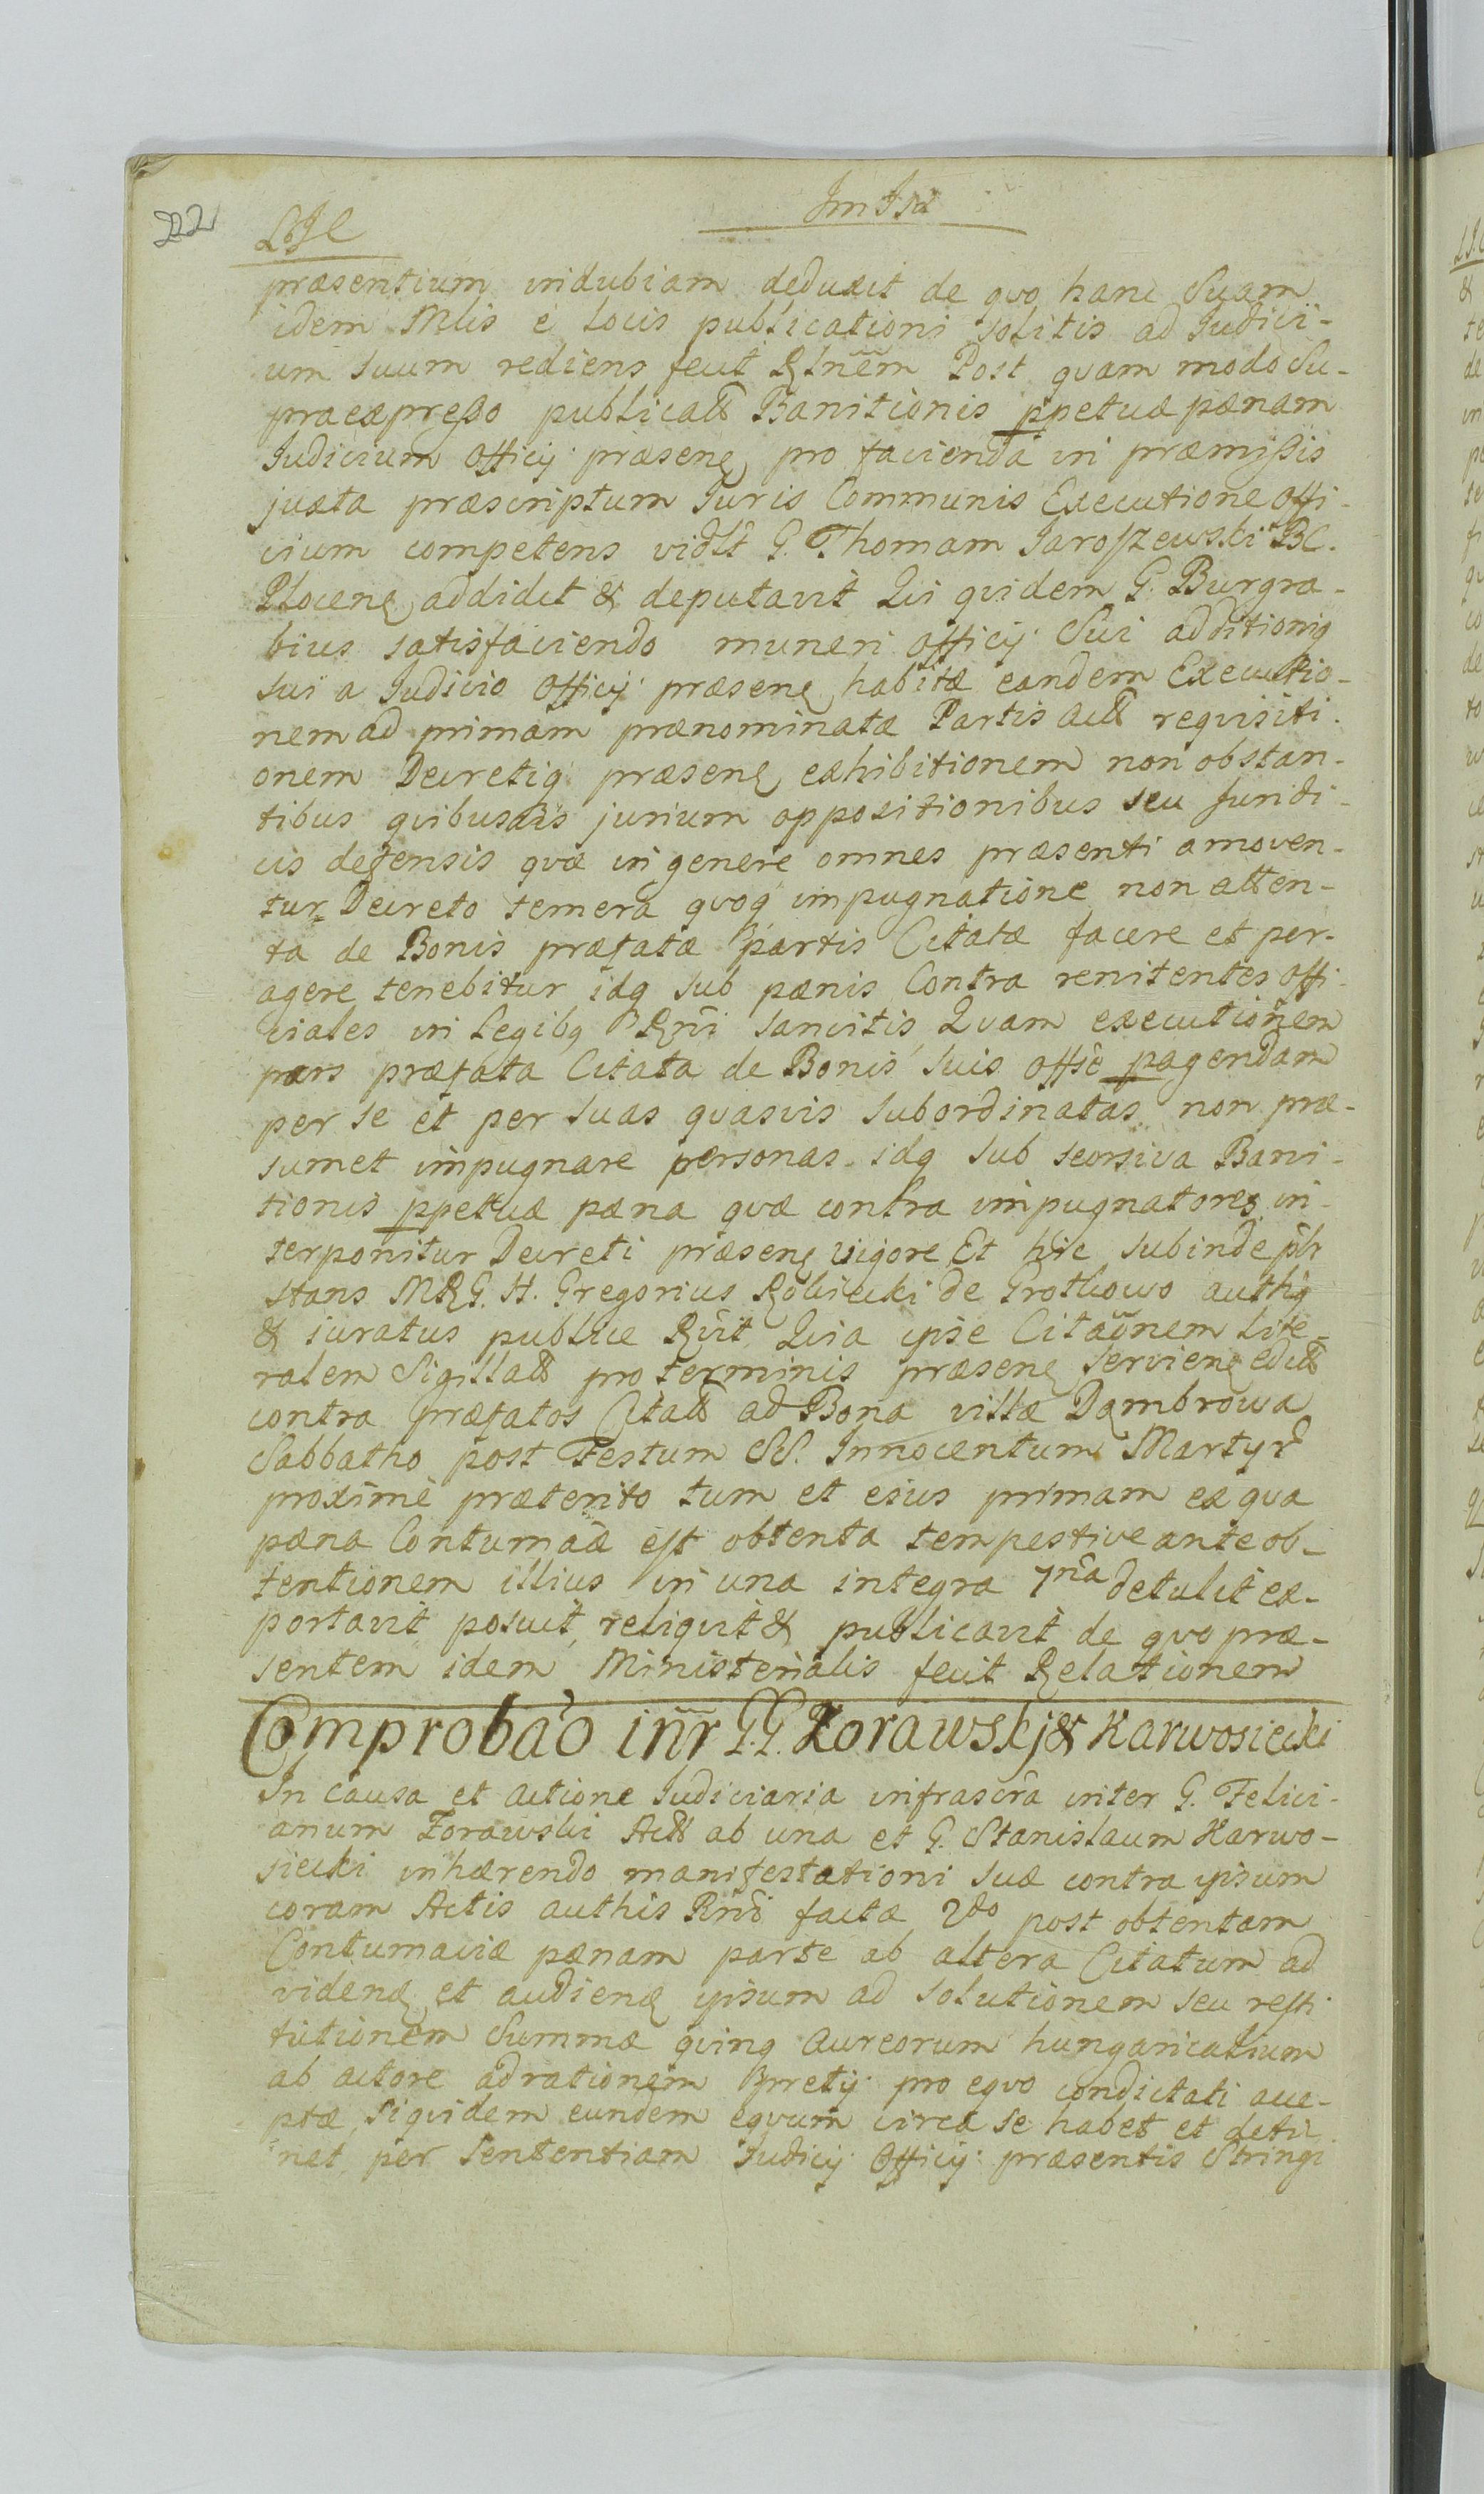 222
præsentium indubiam deduxit de quo hanc Suam
idem Mlis è locis publicationi solitis ad Iudici-
um suum rediens fecit Rlnẽm Post quam modo Su-
praexpresso publicatã Banitionis ppetuæ pænam
Iudicium Officij præseng pro facienda in præmissis
juxta præscriptum Iuris Communis Executione offi-
cium competens vidlt G. Thomam Jaroszewski BC.
Ploceng addidit & deputavit Qui quidem G. Burgra-
bius satisfaciendo muneri officij Sui additionig
sui a Iudicio Officij præseng habitæ eandem Executio-
nem ad primam prænominatæ Partis Act requisiti-
onem Decretig præseng exhibitionem non obstan-
tibus quibusvis jurium oppositionibus seu juridi-
cis defensis quæ in genere omnes præsenti amoven-
tur Decreto temera quoq impugnatione non atten-
ta de Bonis præfatæ partis Citatæ facere et per-
agere tenebitur idq sub pænis Contra renitentes offi-
ciales in Legibq Rgni sancitis Quam executionem
pars præfata Citata de Bonis suis offsè pagendam
per se et per suas quasvis subordinatas non præ-
sumet impugnare personas idq sub seorsiva Bani-
tionis ppetuæ pæna quæ contra impugnatores in-
terponitur Decreti præseng vigore Et hic subinde plr
stans MRG. H. Gregorius Robiecki de Grotkowo authg
& iuratus publice Rvit Quia ipse Citaõnem lite-
ralem Sigillatã pro terminis præseng servieng edit
contra præfatos Citatã ad Bona villæ Dambrowa
Sabbatho post Festum SS. Innocentum Martyr
proximè præterito tum et eius primam ex qua
pæna Contumaciæ est obtenta tempestive ante ob-
tentionem illius in una integra 7na detulit ex-
portavit posuit reliqvit & publicavit de quo præ-
sentem idem Ministerialis fecit Relationem
Comprobaõ inr̃ GG Zorawskj & Karwosiecki
In causa et actione Iudiciaria infrascra inter G. Felici-
anum Zorawski Act ab una et G. Stanislaum Karwo-
siecki inhærendo manifestationi suæ contra ipsum
coram Actis authis Rndi factæ 2do post obtentam
Contumaciæ pænam parte ab altera Citatum ad
videng et audieng ipsum ad solutionem seu resti-
tutionem Summæ quing Aureorum hungaricalium
ab actore ad rationem Prretij pro eqvo condictati acce-
ptæ, siquidem eundem eqvum circa se habet et deti-
net, per sententiam Iudicij Officij præsentis Stringi